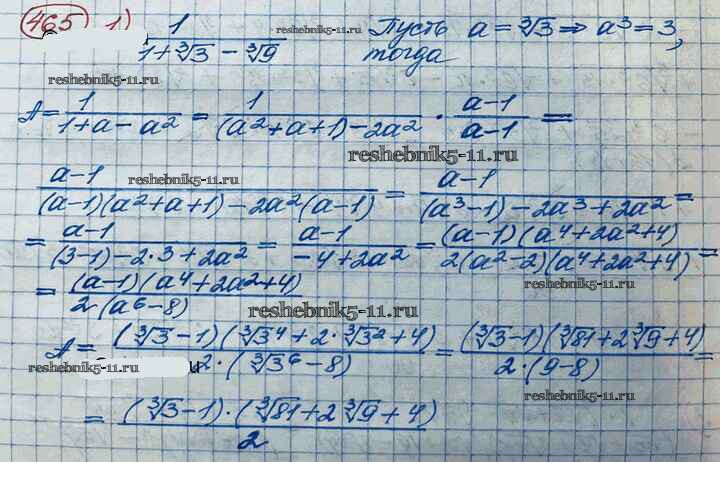 465 1) 1/(1+∛3 − ∛9) reshebnik5-11.ru Пусть a = ∛3 ⇒ a³ = 3,
тогда
reshebnik5-11.ru
A = 1/(1+a−a²) = 1/((a²+a+1)−2a²) · (a−1)/(a−1) =
reshebnik5-11.ru
(a−1)/((a−1)(a²+a+1)−2a²(a−1)) = (a−1)/((a³−1)−2a³+2a²) =
reshebnik5-11.ru
= (a−1)/((3−1)−2·3+2a²) = (a−1)/(−4+2a²) = (a−1)(a⁴+2a²+4)/(2(a²−2)(a⁴+2a²+4)) =
reshebnik5-11.ru
= (a−1)(a⁴+2a²+4)/(2(a⁶−8))
reshebnik5-11.ru
A = (∛3−1)(∛3⁴+2·∛3²+4)/(2·(∛3⁶−8)) = (∛3−1)(∛81+2∛9+4)/(2·(9−8)) =
reshebnik5-11.ru
reshebnik5-11.ru
= (∛3−1)·(∛81+2∛9+4)/2